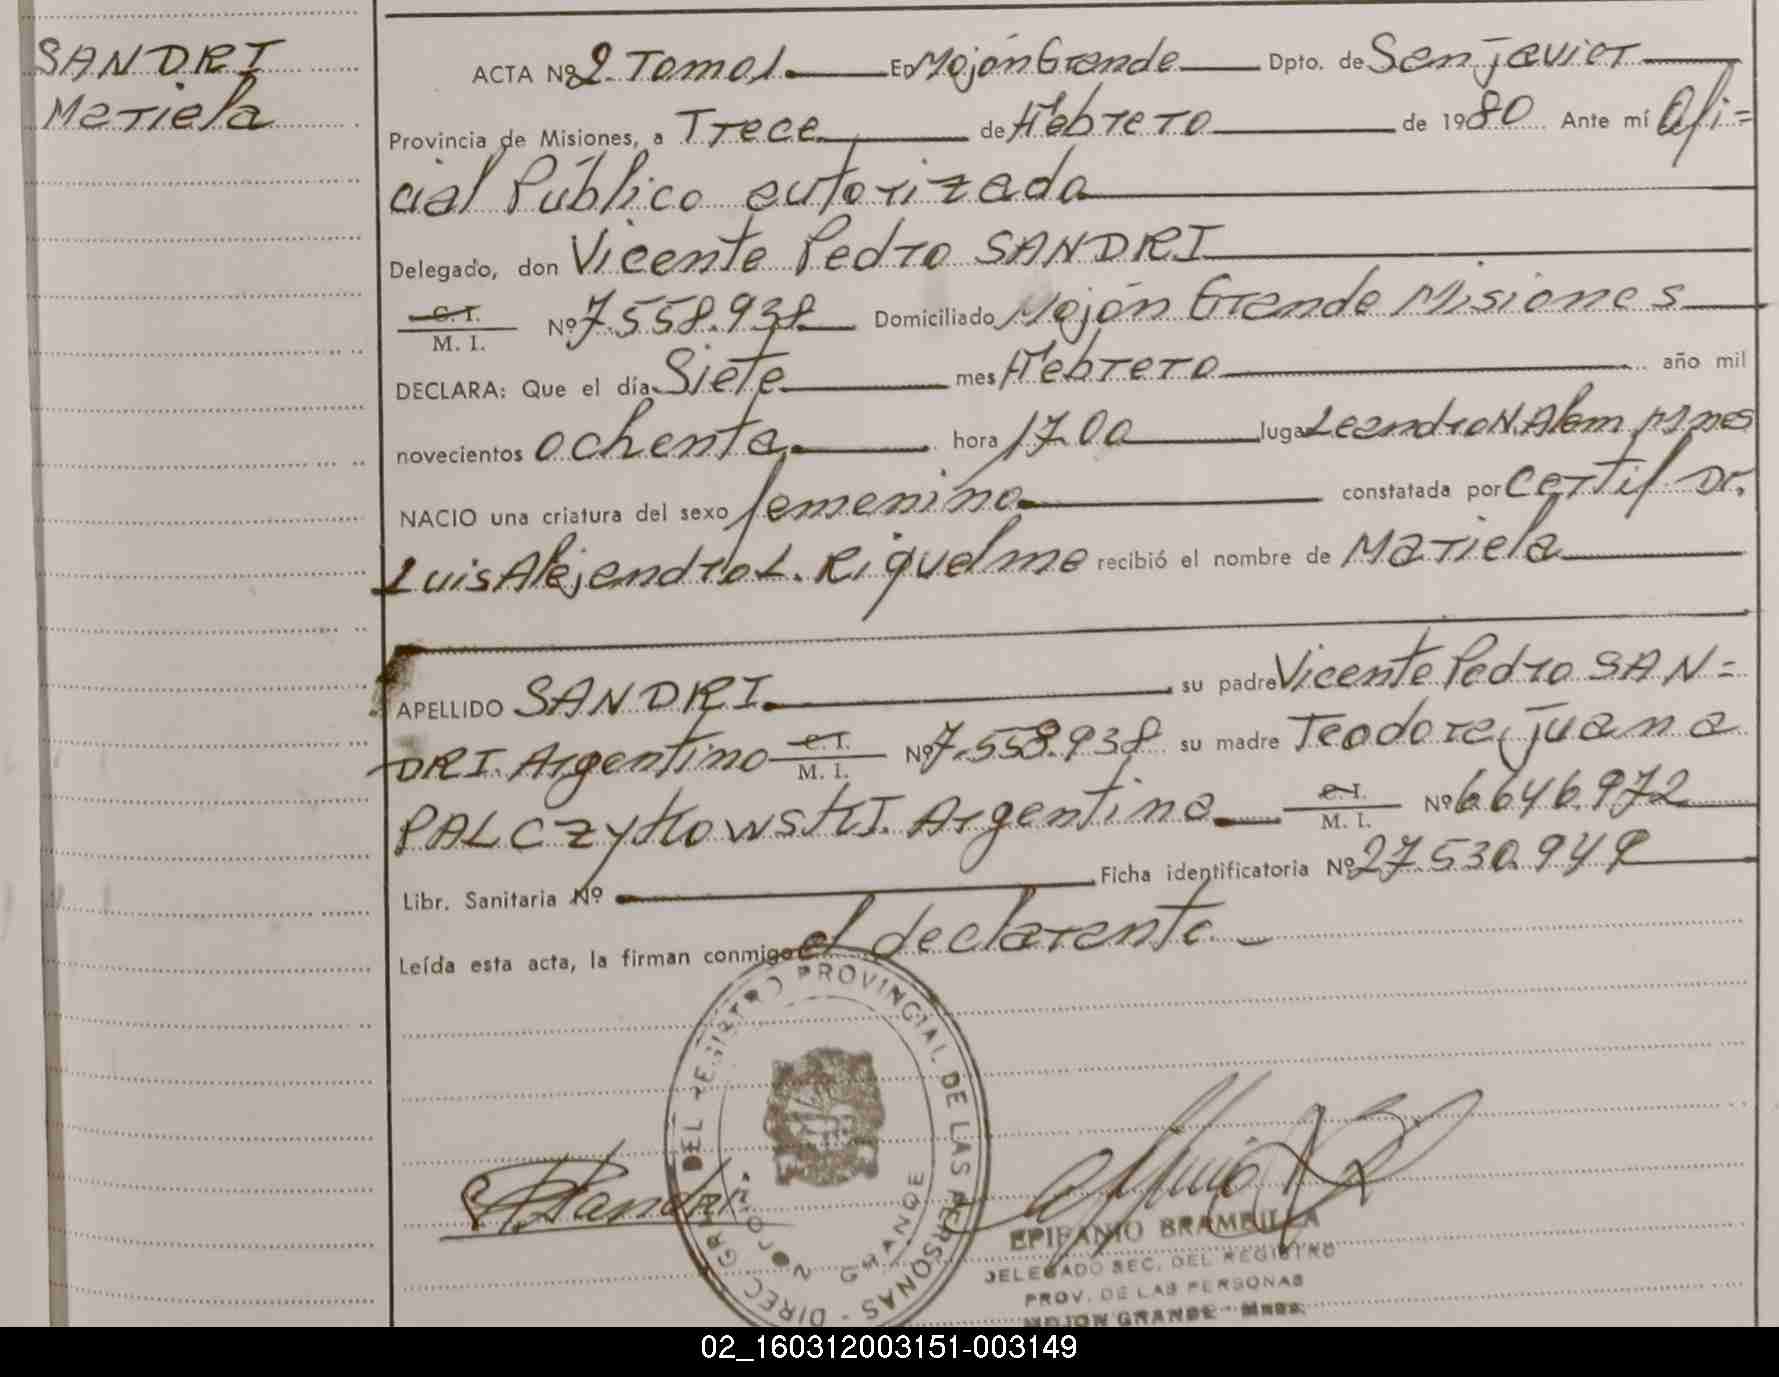 SANDRI
Mariela
ACTA Nº 2 Tomo 1. En Mojón Grande Dpto. de San Javier
Provincia de Misiones, a Trece de Febrero de 1980 Ante mí Ofi=
cial Público autorizado
Delegado, don Vicente Pedro SANDRI
C. I.
M. I. Nº 7.558.938 Domiciliado Mojón Grande Misiones
DECLARA: Que el día Siete mes Febrero año mil
novecientos ochenta. hora 17.00 lugar Leandro N. Alem Mnes
NACIO una criatura del sexo femenino constatada por Certif. Dr.
Luis Alejandro L. Riquelme recibió el nombre de Mariela
APELLIDO SANDRI. su padre Vicente Pedro SAN=
DRI. Argentino C. I. M. I. Nº 7.558.938 su madre Teodora Juana
PALCZYKOWSKI. Argentina C. I. M. I. Nº 6.646.972
Libr. Sanitaria Nº Ficha identificatoria Nº 27.530.949
Leída esta acta, la firman conmigo el declarante.
DIREC. GRAL. DEL REGISTRO PROVINCIAL DE LAS PERSONAS
MOJON GRANDE
Sandri
EPIFANIO BRAMBILLA
DELEGADO SEC. DEL REGISTRO
PROV. DE LAS PERSONAS
MOJON GRANDE - Mnes.
02_160312003151-003149